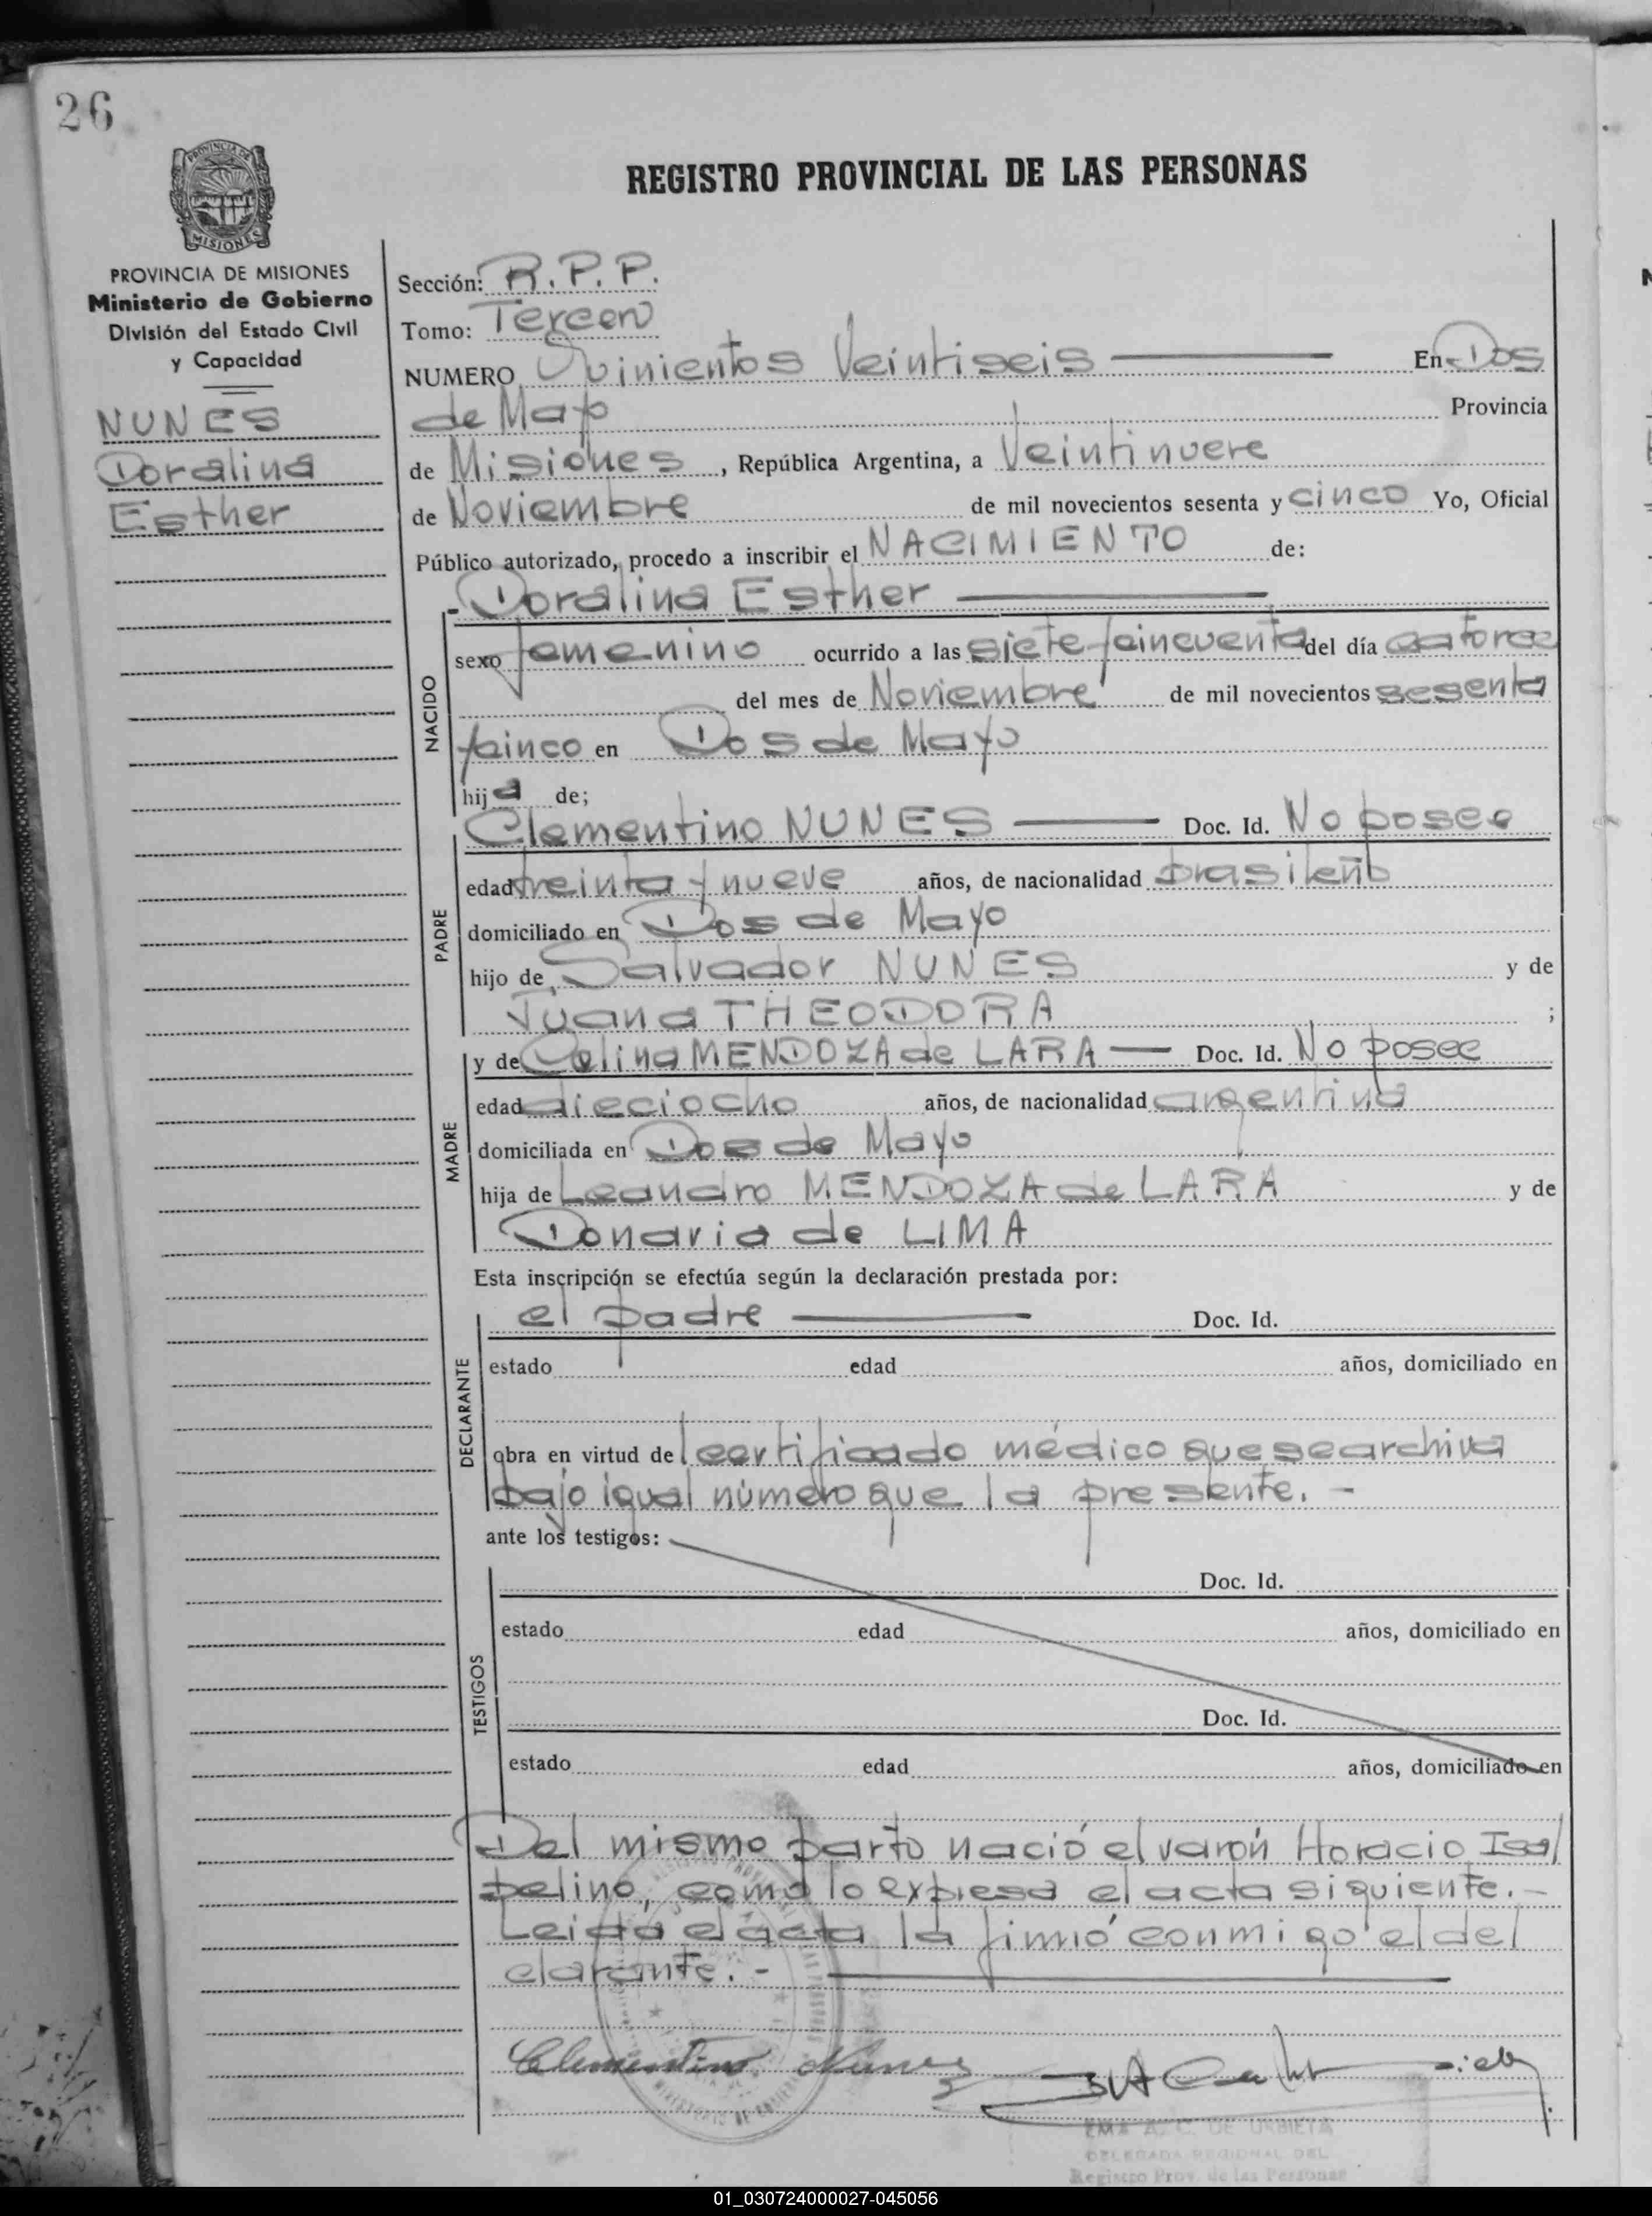 26
REGISTRO PROVINCIAL DE LAS PERSONAS
PROVINCIA DE MISIONES
Ministerio de Gobierno
División del Estado Civil
y Capacidad
NUNES
Doralina
Esther
Sección: R.P.P.
Tomo: Tercero
NUMERO Quinientos Veintiseis En Dos
de Mayo Provincia
de Misiones, República Argentina, a Veintinueve
de Noviembre de mil novecientos sesenta y cinco Yo, Oficial
Público autorizado, procedo a inscribir el NACIMIENTO de:
Doralina Esther
NACIDO
sexo femenino ocurrido a las siete y cincuenta del día catorce
del mes de Noviembre de mil novecientos sesenta
y cinco en Dos de Mayo
hija de;
PADRE
Clementino NUNES Doc. Id. No posee
edad treinta y nueve años, de nacionalidad brasileño
domiciliado en Dos de Mayo
hijo de Salvador NUNES y de
Juana THEODORA ;
MADRE
y de Celina MENDOZA de LARA Doc. Id. No posee
edad dieciocho años, de nacionalidad argentina
domiciliada en Dos de Mayo
hija de Leandro MENDOZA de LARA y de
Donaria de LIMA
Esta inscripción se efectúa según la declaración prestada por:
DECLARANTE
el padre Doc. Id.
estado edad años, domiciliado en
obra en virtud de certificado médico que se archiva
bajo igual número que la presente. -
ante los testigos:
TESTIGOS
Doc. Id.
estado edad años, domiciliado en
Doc. Id.
estado edad años, domiciliado en
Del mismo parto nació el varón Horacio Isa/
belino, como lo expresa el acta siguiente. -
Leida el acta la firmó conmigo el de/
clarante. -
Clementino Nunes
EMA A. C. DE URBIETA
DELEGADA REGIONAL DEL
Registro Prov. de las Personas
01_030724000027-045056